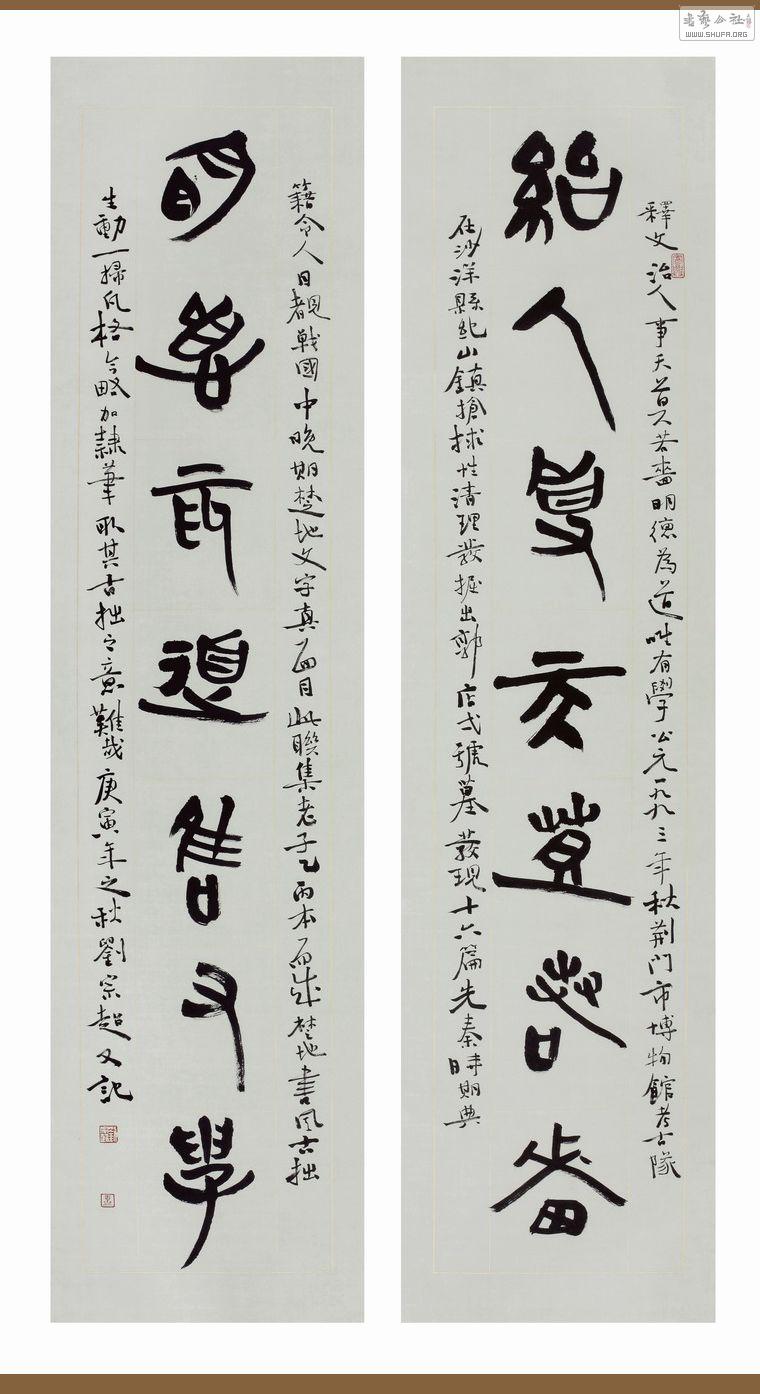 书艺公社
WWW.SHUFA.ORG
釋文 治人事天莫若嗇明德為道唯有學公元一九九三年秋荊門市博物館考古隊
紿人事天莫若嗇
在沙洋縣紀山鎮搶捄性清理發掘出郭店弍號墓發現十六篇先秦時期典
籍令人目覩戰國中晚期楚地文字真面目此聯集老子乙丙本而成楚地書風古拙
明德為道唯又學
生動一掃風格今略加隸筆取其古拙之意難哉庚寅年之秋劉宗超又記